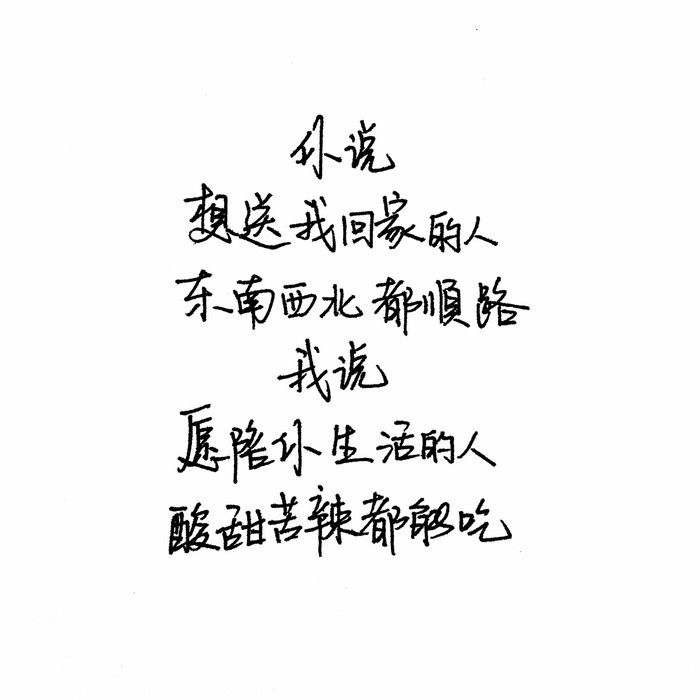 你说
想送我回家的人
东南西北都順路
我说
愿陪你生活的人
酸甜苦辣都能吃